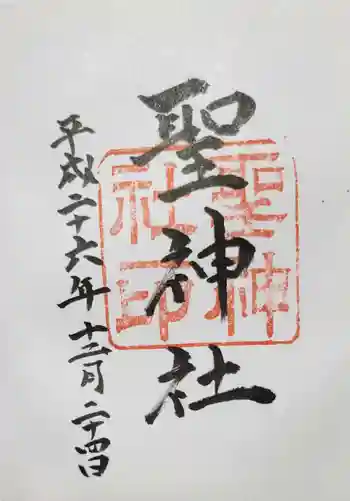 聖神社
平成二十六年十二月二十四日
聖神
社印